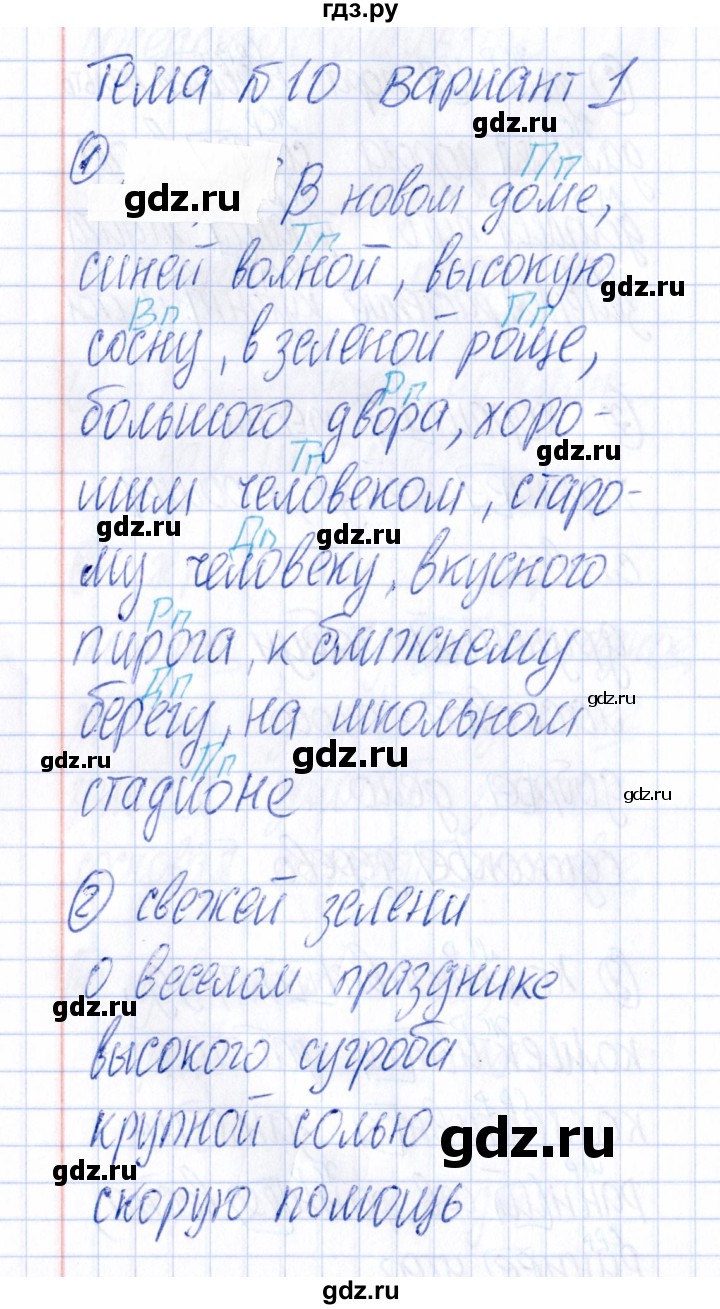 гдз.ру
Тема №10 вариант 1
gdz.ru
Пп
① В новом доме,
gdz.ru
Тп
синей волной, высокую
gdz.ru
Вп Пп
сосну, в зеленой роще,
Рп
большого двора, хоро-
gdz.ru
Тп
шим человеком, старо-
gdz.ru gdz.ru
Дп
му человеку, вкусного
Рп
пирога, к ближнему
Дп
берегу, на школьном
gdz.ru
gdz.ru Пп gdz.ru
стадионе
gdz.ru
② свежей зелени
о веселом празднике
gdz.ru
высокого сугроба
крупной солью
gdz.ru
gdz.ru
скорую помощь
gdz.ru